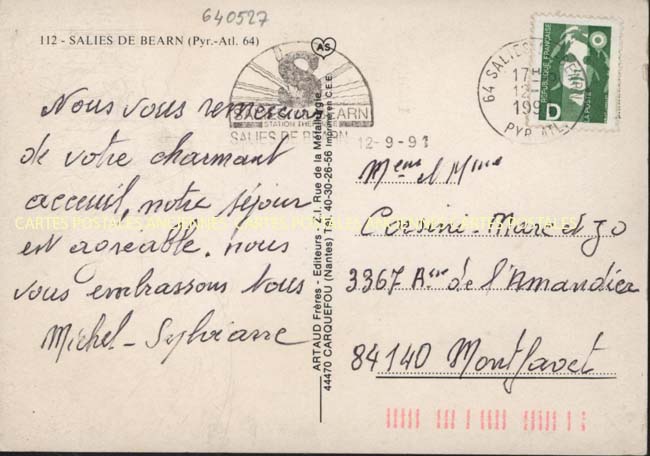 640527
112 - SALIES DE BEARN (Pyr.-Atl. 64)
Nous vous remercions
de votre charmant
acceuil, notre séjour
est agréable, nous
vous embrassons tous
Michel - Sylvianne
AS
ARTAUD Frères - Editeurs - Z.I. Rue de la Métallurgie
44470 CARQUEFOU (Nantes) Tél. 40-30-26-56 Imprimé en C.E.E.
S
SALIES DE BEARN
STATION THERMALE
SALIES DE BEARN
12-9-91
64 SALIES
17H
12
199
PYR. ATL.
REPUBLIQUE FRANÇAISE
D
LA POSTE
Mme
Corsini Marc et Jo
3367 de l'Amandier
84140 Montfavet
CARTES POSTALES ANCIENNES CARTES POSTALES ANCIENNES CARTES POSTALES